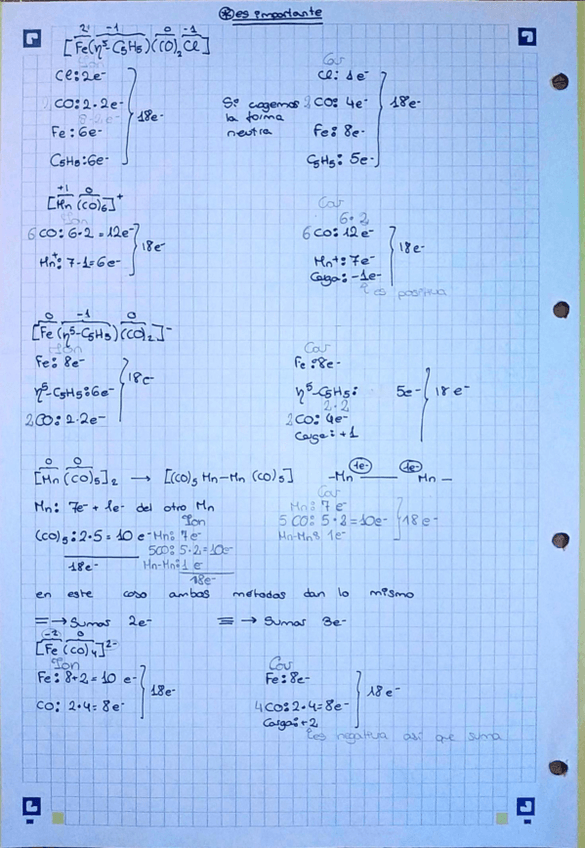 ⊛es importante
2+ -1 0 -1
[Fe(η⁵-C₅H₅)(CO)₂Cl]
Ion
Cl: 2e-
2 CO: 2·2e-
Fe: 6e-
C₅H₅: 6e-
18e-
Si cogemos
la forma
neutra
Cov
Cl: 1e-
2 CO: 4e-
Fe: 8e-
C₅H₅: 5e-
18e-
+1 0
[Mn(CO)₆]⁺
Ion
6 CO: 6·2 = 12e-
Mn⁺: 7-1=6e-
18e-
Cov
6·2
6 CO: 12e-
Mn⁺: 7e-
Carga: -1e-
18e-
es positiva
0 -1 0
[Fe(η⁵-C₅H₅)(CO)₂]⁻
Ion
Fe: 8e-
η⁵-C₅H₅: 6e-
2 CO: 2·2e-
18e-
Cov
Fe: 8e-
η⁵-C₅H₅: 5e-
2·2
2 CO: 4e-
Carga: +1
18e-
0 0
[Mn(CO)₅]₂ → [(CO)₅Mn-Mn(CO)₅] -Mn — Mn-
1e- 1e-
Mn: 7e- + 1e- del otro Mn
(CO)₅: 2·5 = 10 e-
18e-
Ion
Mn: 7e-
5CO: 5·2=10e-
Mn-Mn: 1 e-
18e-
Cov
Mn: 7 e-
5 CO: 5·2=10e-
Mn-Mn: 1e-
18 e-
en este caso ambos métodos dan lo mismo
= → Sumas 2e- ≡ → Sumas 3e-
-2 0
[Fe(CO)₄]²⁻
Ion
Fe: 8+2=10 e-
CO: 2·4= 8e-
18e-
Cov
Fe: 8e-
4 CO: 2·4=8e-
Carga: +2
18e-
es negativa así que suma